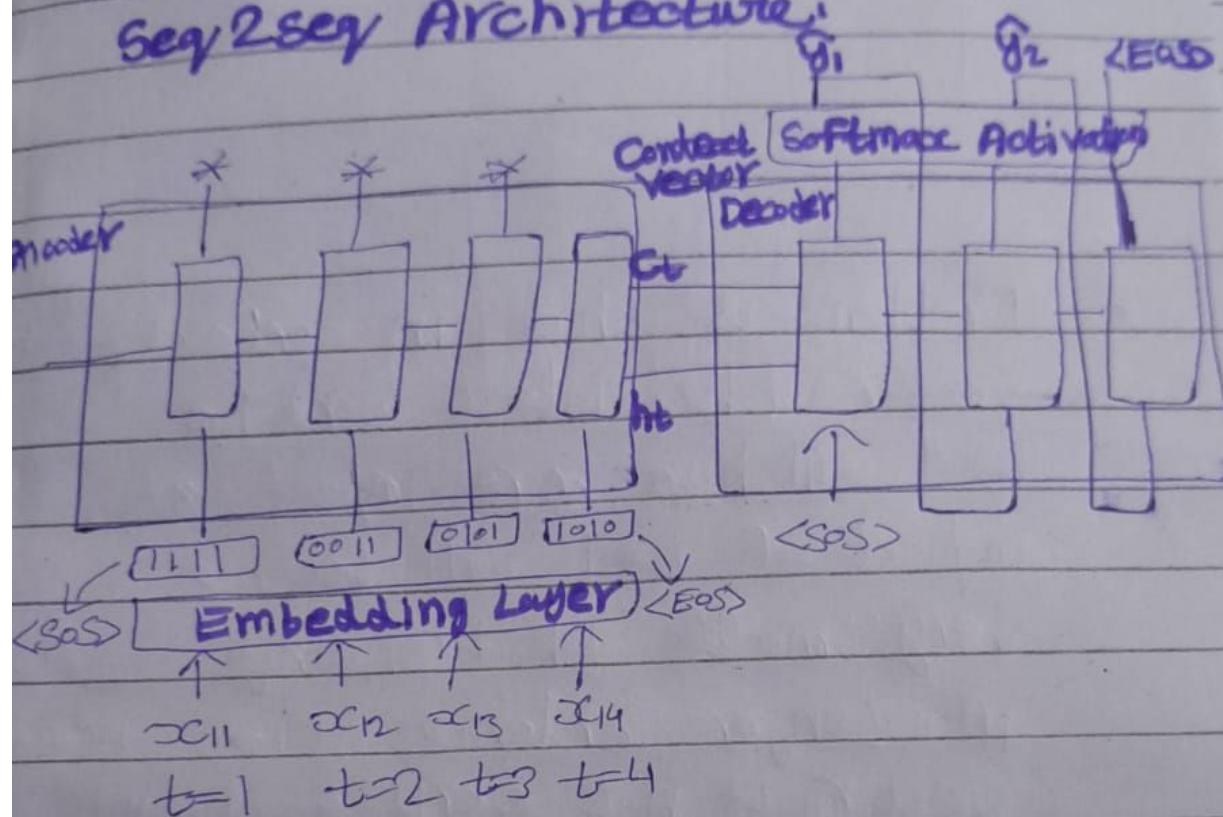 Seq2seq Architecture:
ŷ1 ŷ2 <EOS>
Context vector
Softmax Activation
Encoder
Decoder
Ct
ht
1111 0011 0101 1010
<SOS>
<SOS> Embedding Layer <EOS>
x11 x12 x13 x14
t=1 t=2 t=3 t=4